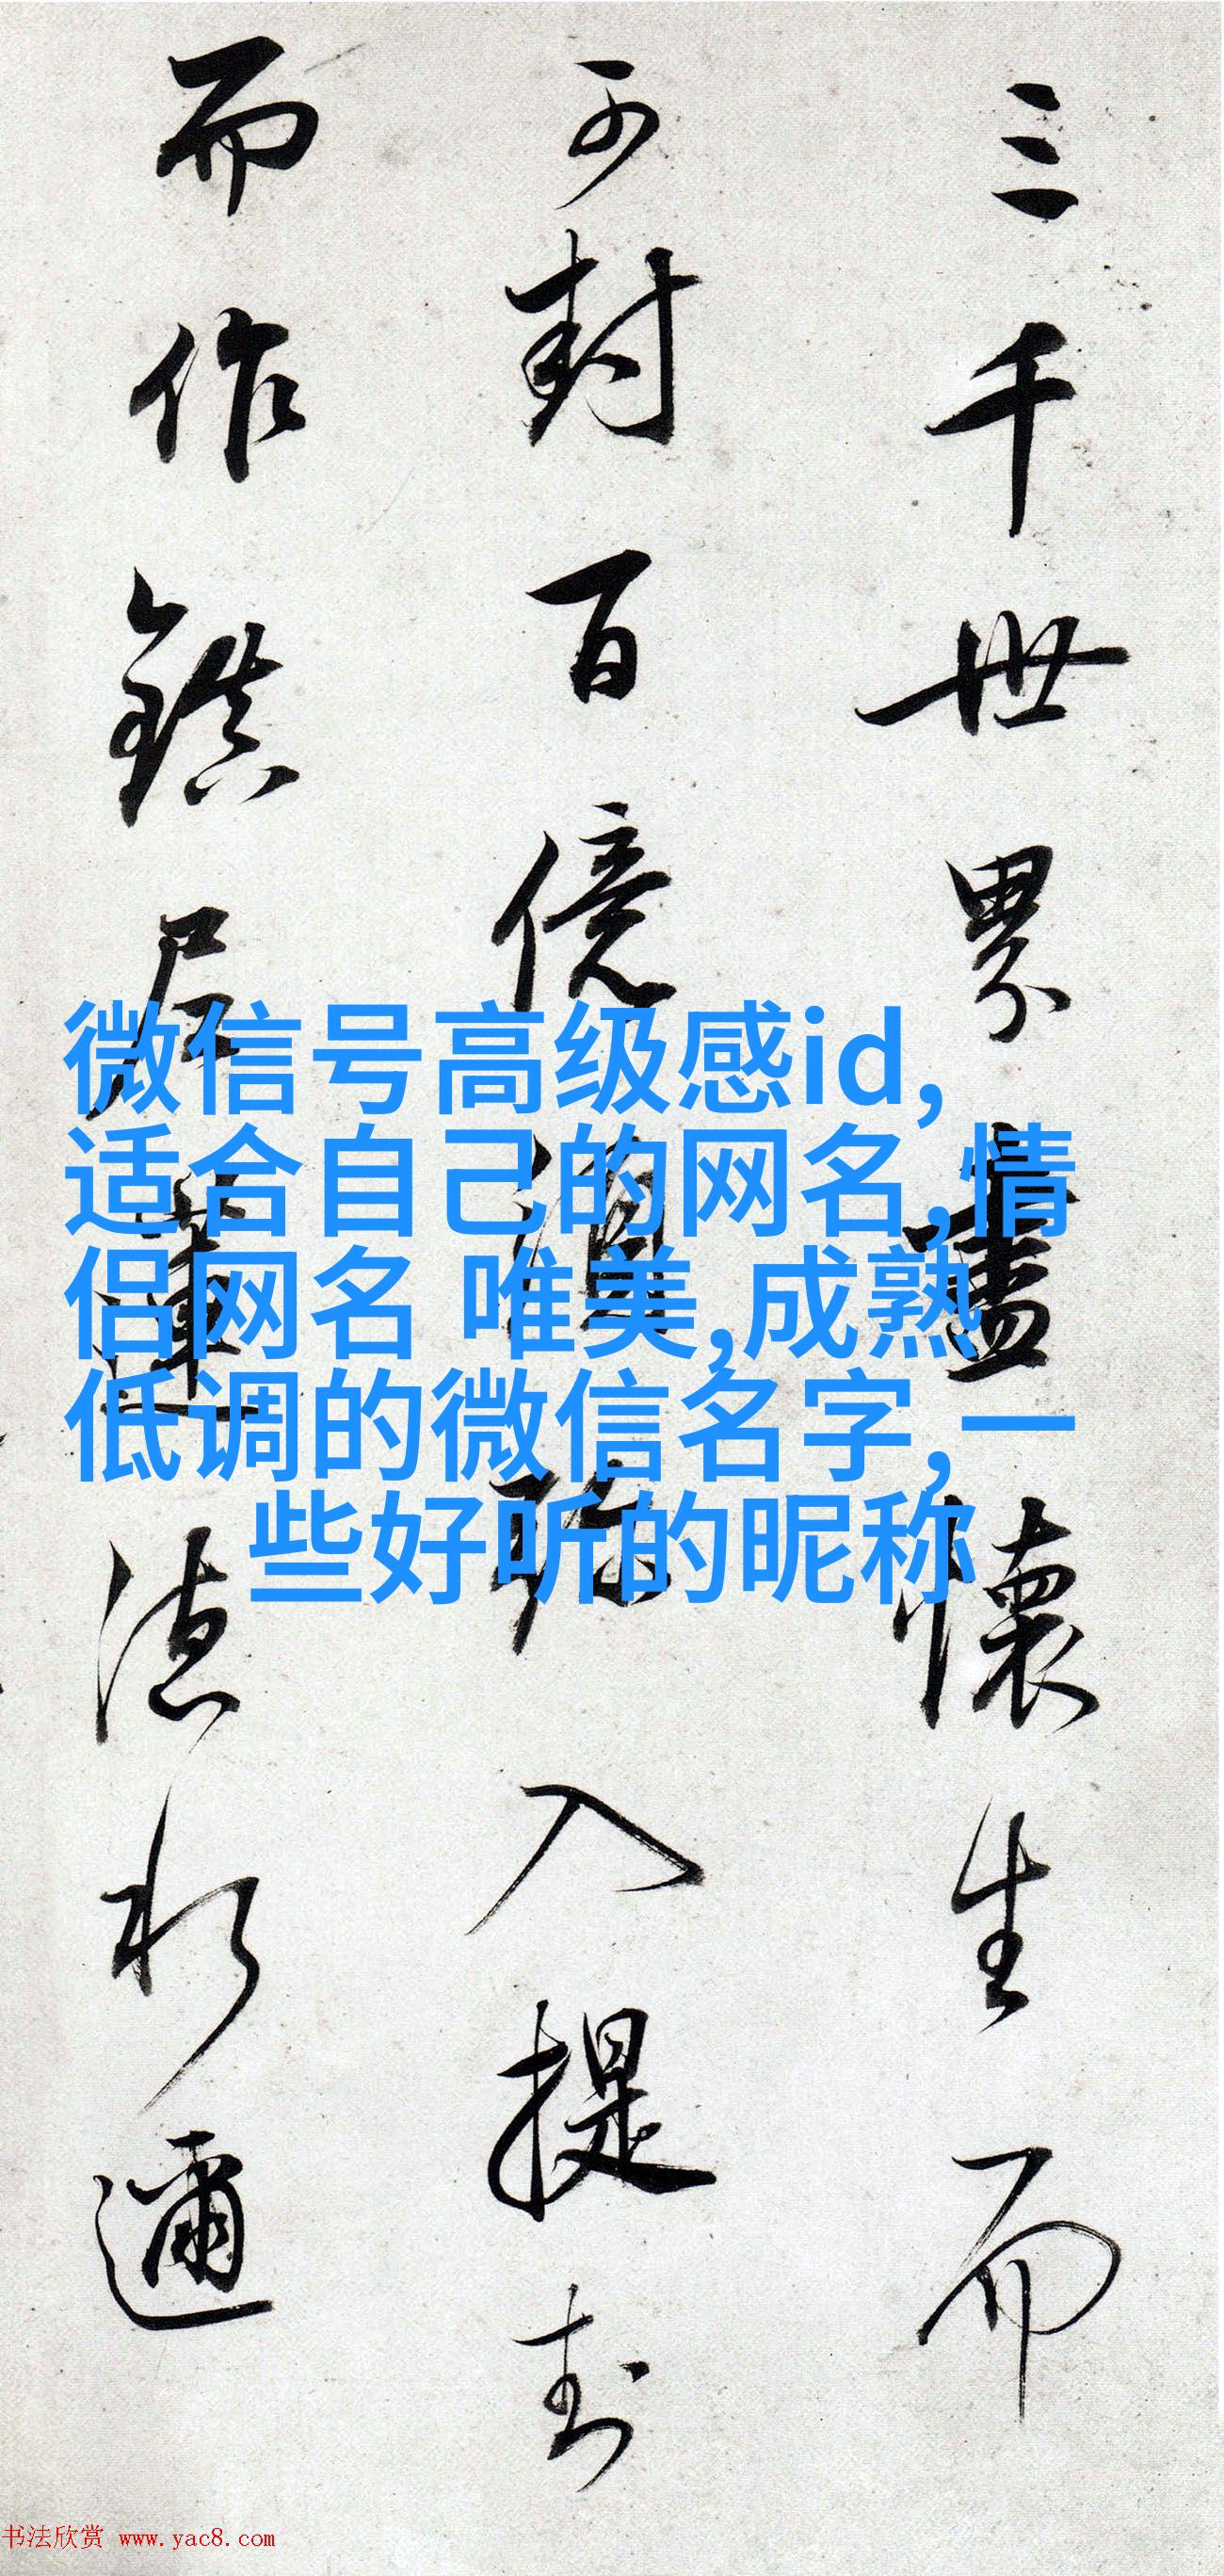 三千世界盡懷生而
可封百億須弥入提封
而作鎮居蓮
德水邇
微信号高级感id,
适合自己的网名,情
侣网名 唯美,成熟
低调的微信名字,一
些好听的昵称
书法欣赏 www.yac8.com